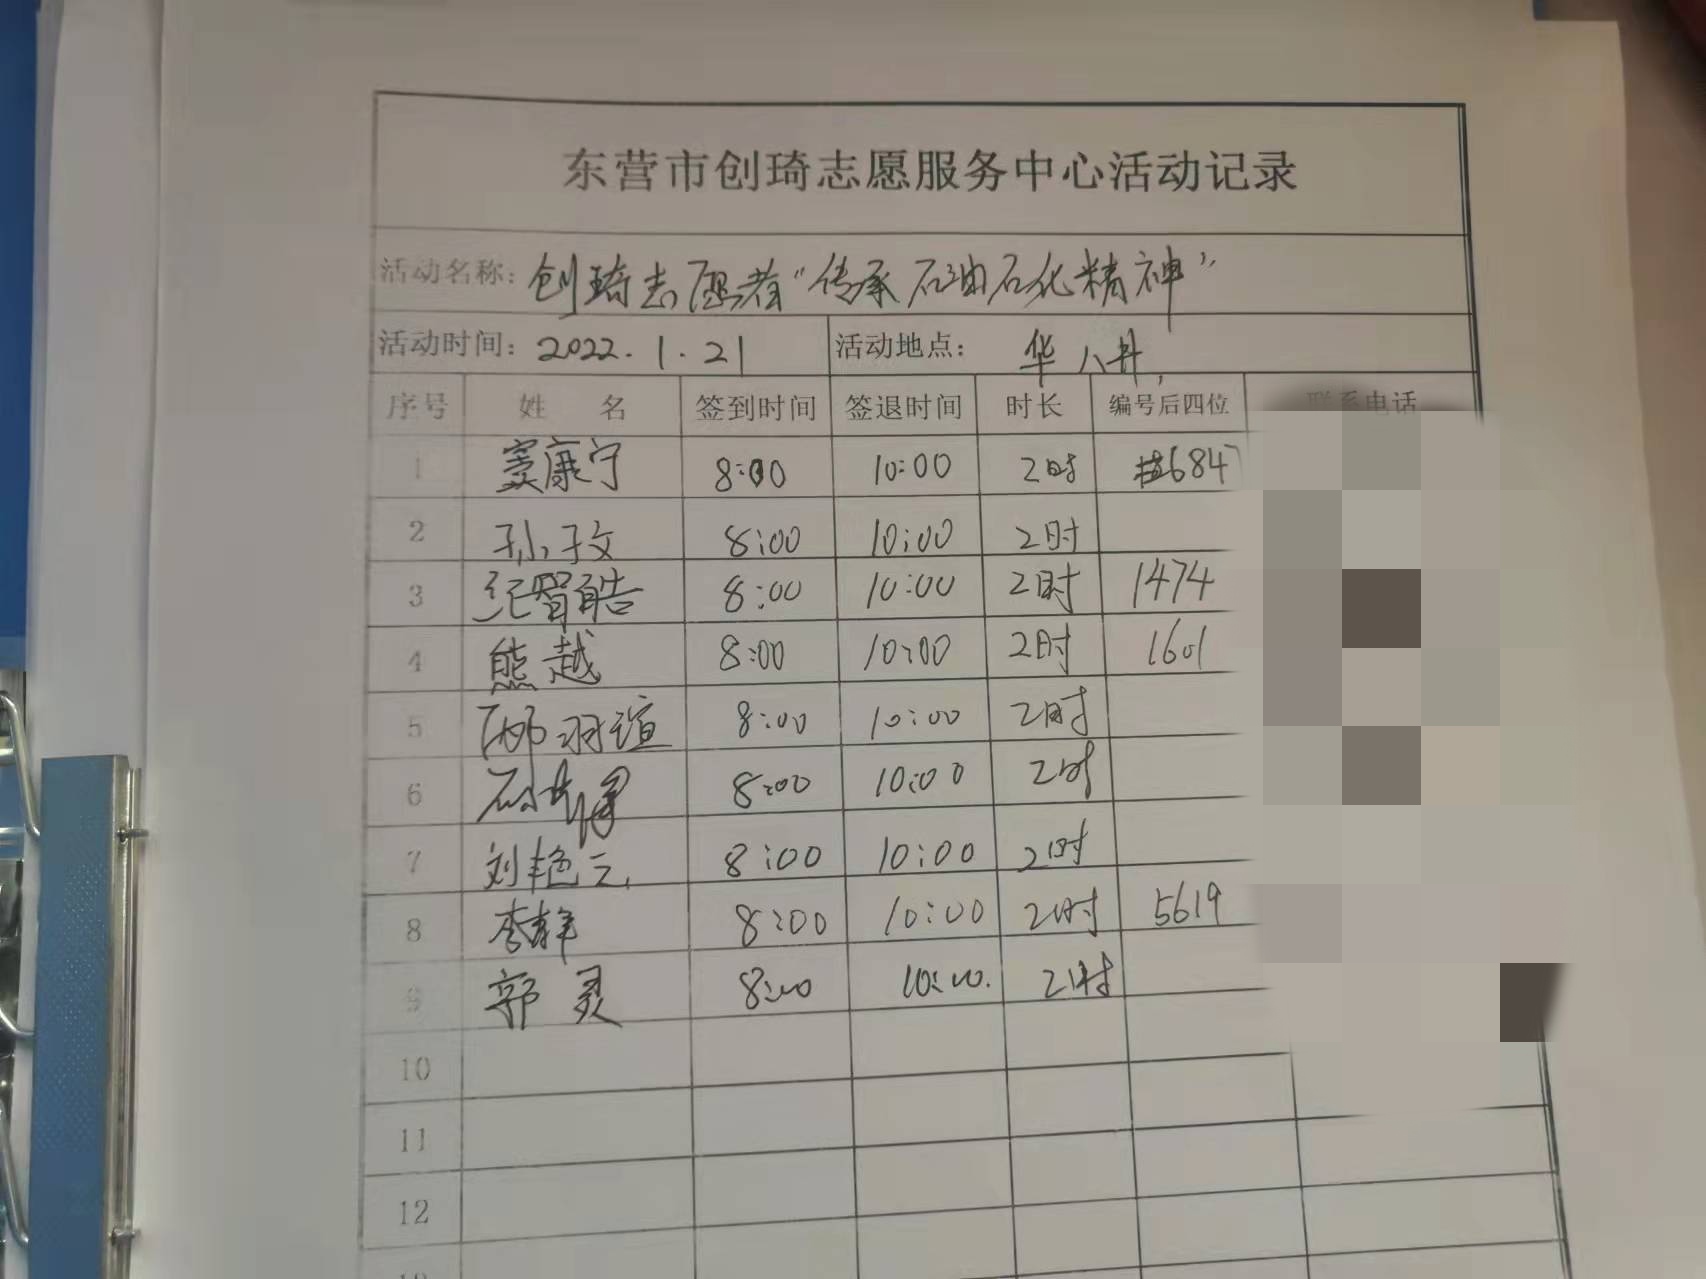 东营市创琦志愿服务中心活动记录
活动名称：创琦志愿者“传承石油石化精神”
活动时间：2022.1.21 活动地点：华八井
序号 姓名 签到时间 签退时间 时长 编号后四位 联系电话
1 窦康宁 8:00 10:00 2时 6847
2 孙孜 8:00 10:00 2时
3 纪智皓 8:00 10:00 2时 1474
4 熊越 8:00 10:00 2时 1601
5 邴羽瑄 8:00 10:00 2时
6 8:00 10:00 2时
7 刘艳云 8:00 10:00 2时
8 李静 8:00 10:00 2时 5619
9 郭灵 8:00 10:00. 2时
10
11
12